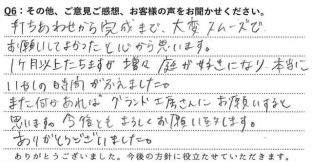 Q6：その他、ご意見ご感想、お客様の声をお聞かせください。
打ちあわせから完成まで、大変スムーズで
お願いしてよかったと心から思います。
1ヶ月以上たちますが 増々 庭が好きになり、本当に
いやしの時間がふえました。
また何かあれば グランド工房さんに お願いすると
思います。今後とも よろしくお願いいたします。
ありがとうございました。
ありがとうございました。今後の方針に役立たせていただきます。